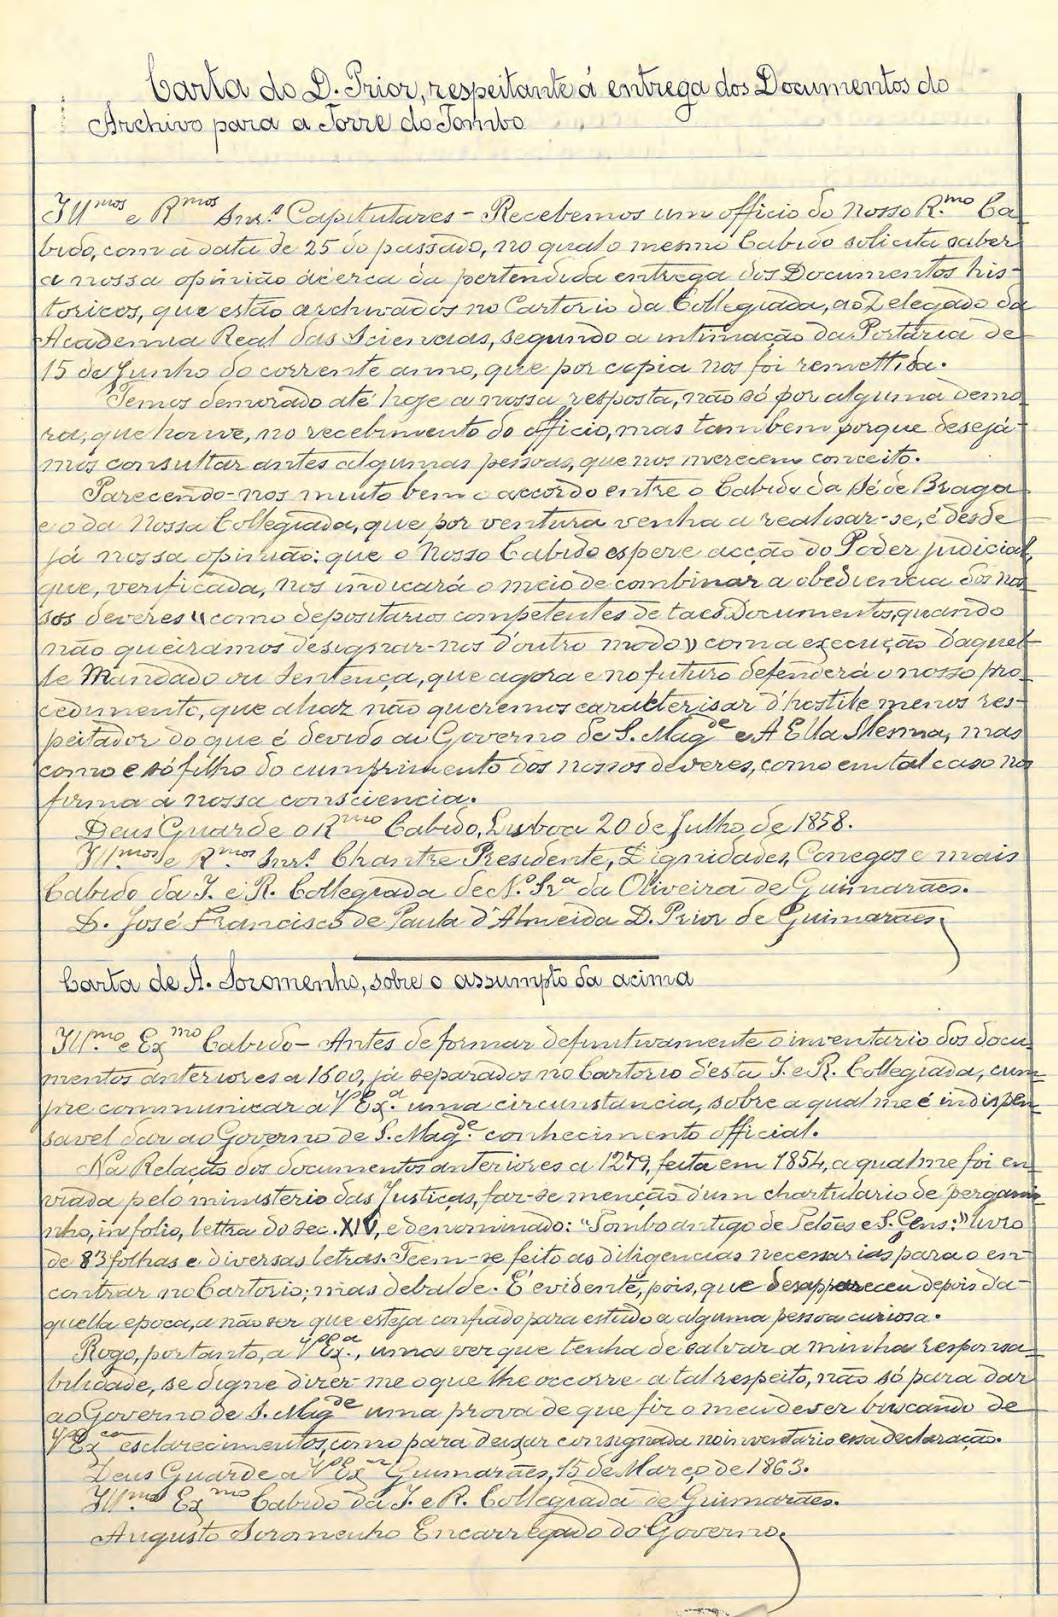 Carta do D. Prior, respeitante á entrega dos Documentos do
Archivo para a Torre do Tombo
Ill.mos e R.mos Snr.s Capitulares - Recebemos um officio do Nosso R.mo Ca-
bido, com a data de 25 do passado, no qual o mesmo Cabido solicita saber
a nossa opinião ácerca da pertendida entrega dos Documentos his-
toricos, que estão archivados no Cartorio da Collegiada, ao Delegado da
Academia Real das Sciencias, segundo a intimação da Portaria de
15 de Junho do corrente anno, que por copia nos foi remettida.
Temos demorado até hoje a nossa resposta, não só por alguma demo-
ra, que houve, no recebimento do officio, mas tambem porque desejá-
mos consultar antes algumas pessoas, que nos merecem conceito.
Parecendo-nos muito bem o accordo entre o Cabido da Sé de Braga
e o da Nossa Collegiada, que por ventura venha a realisar-se, é desde
já nossa opinião: que o Nosso Cabido espere acção do Poder judicial,
que, verificada, nos indicará o meio de combinar a obediencia dos nos-
sos deveres «como depositarios competentes de taes Documentos, quando
não queiramos designar-nos d'outro modo» com a execução daquel-
le Mandado ou Sentença, que agora e no futuro defenderá o nosso pro-
cedimento, que aliaz não queremos caracterisar d'hostil e menos res-
peitador do que é devido ao Governo de S. Mag.de e A Ella Mesma, mas
como e só filho do cumprimento dos nossos deveres, como em tal caso nos
firma a nossa consciencia.
Deus Guarde o R.mo Cabido, Lisboa 20 de Julho de 1858.
Ill.mos e R.mos Snr.s Chantre Presidente, Dignidades, Conegos e mais
Cabido da I. e R. Collegiada de N.ª Sr.a da Oliveira de Guimarães.
D. José Francisco de Paula d'Almeida D. Prior de Guimarães
Carta de A. Soromenho, sobre o assumpto da acima
Ill.mo e Ex.mo Cabido - Antes de formar definitivamente o inventario dos docu-
mentos anteriores a 1600, já separados no Cartorio d'esta I. e R. Collegiada, cum-
pre communicar a V. Ex.a uma circunstancia, sobre a qual me é indispen-
savel dar ao Governo de S. Mag.de conhecimento official.
Na Relação dos documentos anteriores a 1279, feita em 1854, a qual me foi en-
viada pelo ministerio das Justiças, faz-se menção d'um chartulario de pergami-
nho, in folio, lettra do sec. XIV, e denominado: "Tombo antigo de Telões e S. Gens:" livro
de 83 folhas e diversas letras. Teem-se feito as diligencias necessarias para o en-
contrar no Cartorio; mas debalde. É evidente, pois, que desappareceu depois da-
quella epoca, a não ser que esteja confiado para estudo a alguma pessoa curiosa.
Rogo, portanto, a V. Ex.a, uma vez que tenha de salvar a minha responsa-
bilidade, se digne dizer-me o que lhe occorre a tal respeito, não só para dar
ao Governo de S. Mag.de uma prova de que fiz o meu dever buscando de
V. Ex.a esclarecimentos, como para deixar consignada no inventario essa declaração.
Deus Guarde a V. Ex.a Guimarães, 15 de Março de 1863.
Ill.mo Ex.mo Cabido da I. e R. Collegiada de Guimarães.
Augusto Soromenho Encarregado do Governo.